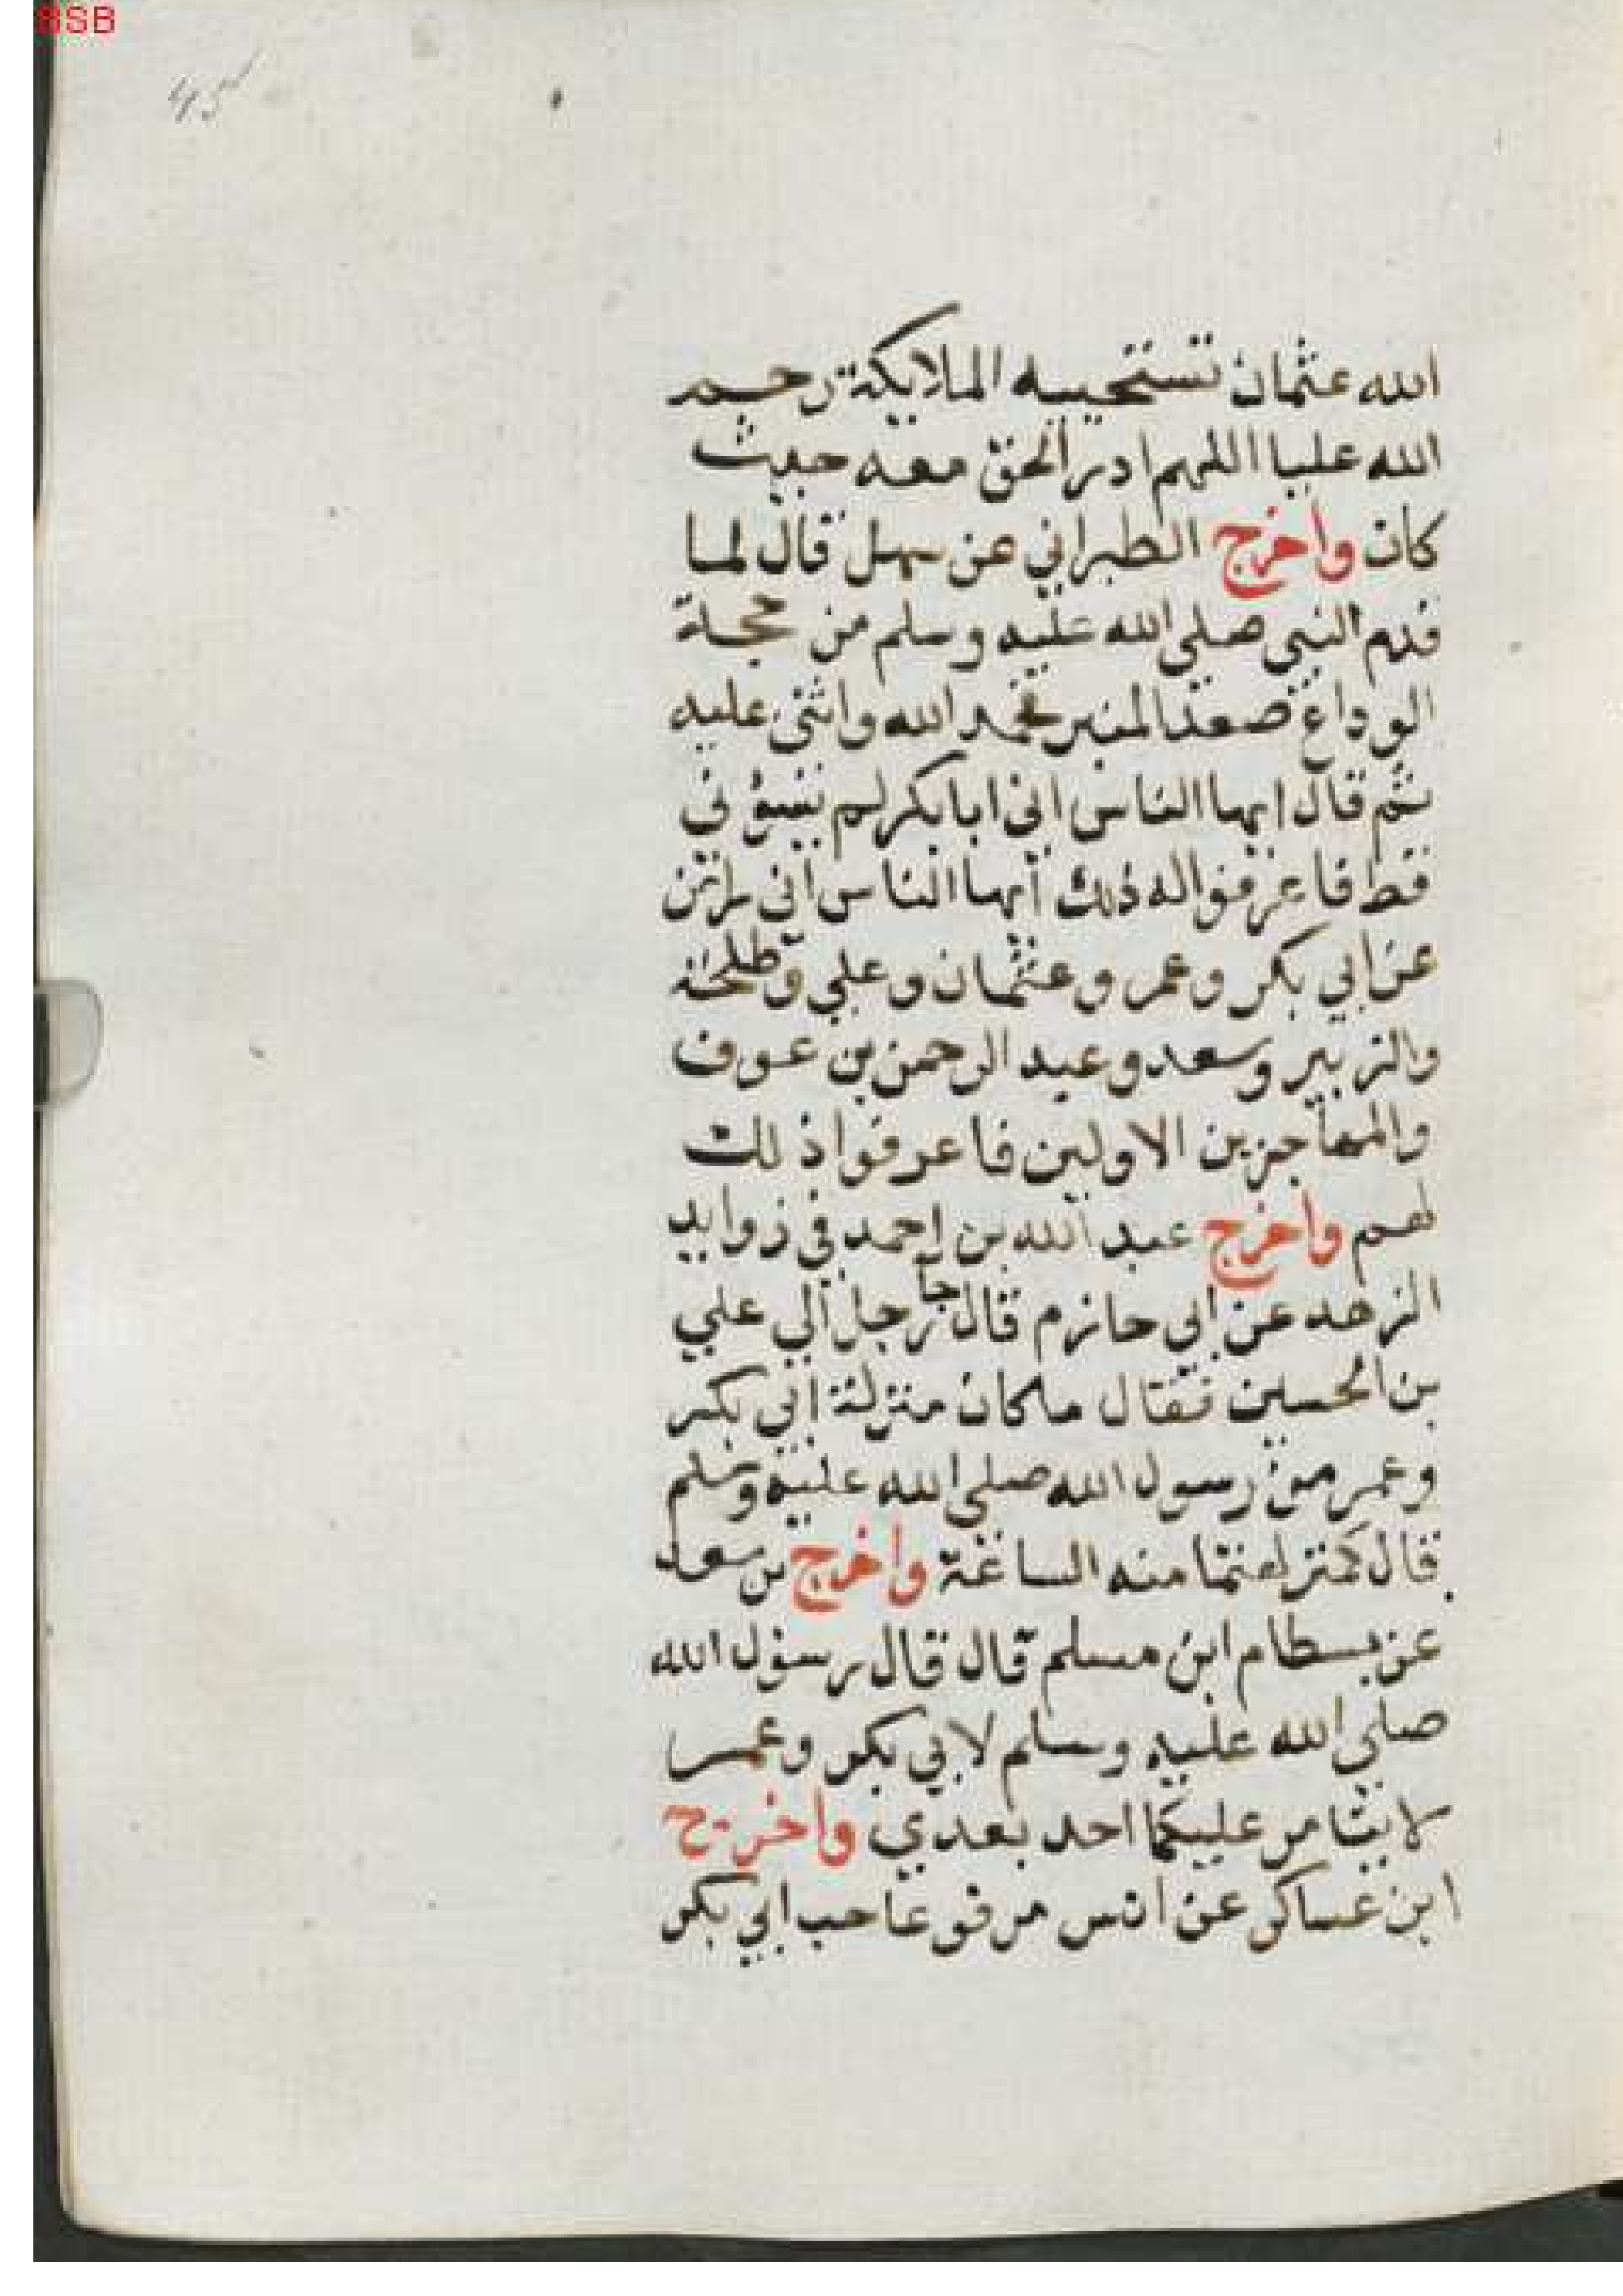 BSB
45
الله عثمان تستحييه الملايكة رحم
الله عليا اللهم ادر الحق معه حيث
كان واخرج الطبراني عن سهل قال لما
قدم النبي صلى الله عليه وسلم من حجة
الوداع صعد المنبر فحمد الله واثنى عليه
ثم قال ايها الناس ان ابا بكر لم يسؤني
قط فاعرفوا له ذلك ايها الناس اني راض
عن ابي بكر وعمر وعثمان وعلي وطلحة
والزبير وسعد وعبد الرحمن بن عوف
والمهاجرين الاولين فاعرفوا ذلك
لهم واخرج عبد الله بن احمد في زوايد
الزهد عن ابي حازم قال جا رجل الى علي
بن الحسين فقال ما كان منزلة ابي بكر
وعمر من رسول الله صلى الله عليه وسلم
قال كمنزلهتما منه الساعة واخرج بن سعد
عن بسطام ابن مسلم قال قال رسول الله
صلى الله عليه وسلم لابي بكر وعمر
لا يتامر عليكما احد بعدي واخرج
ابن عساكر عن انس مرفوعا حب ابي بكر